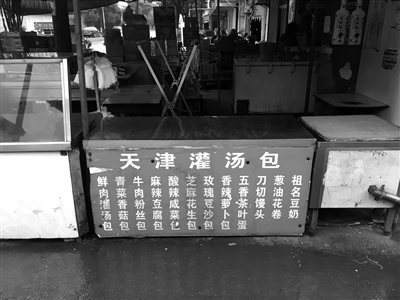 天津灌汤包
鲜肉灌汤包
青菜香菇包
牛肉粉丝包
麻辣豆腐包
酸辣咸菜包
芝麻花生包
玫瑰豆沙包
香辣萝卜包
五香茶叶蛋
刀切馒头
葱油花卷
祖名豆奶